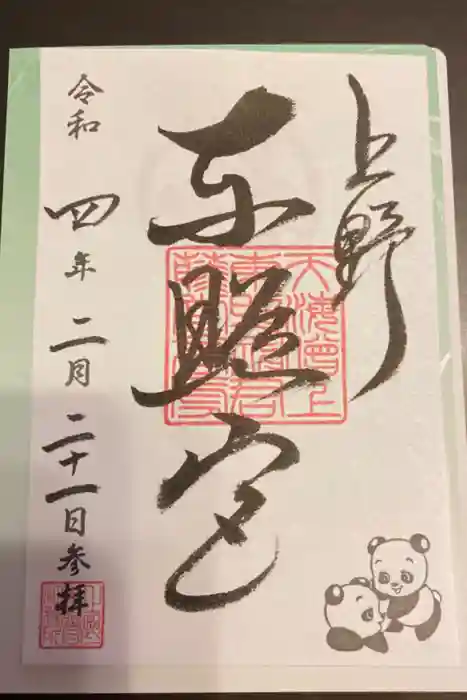 上野
東照宮
令和四年二月二十一日参拝